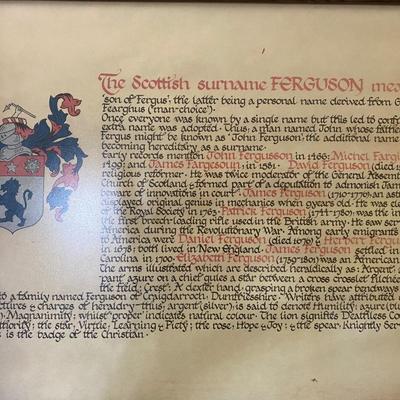 The Scottish surname FERGUSON mea
'son of Fergus', the latter being a personal name derived from G
Fearghus ('man-choice').
Once everyone was known by a single name but this led to conf
extra name was adopted. Thus, a man named John whose father
Fergus might be known as 'John Ferguson', the additional name
becoming hereditary as a surname.
Early records mention John Fergusson in 1466; Michel Farg
in 1499; and James Fargesoun, in 1561. David Ferguson (died 15
religious reformer. He was twice moderator of the General Assemb
Church of Scotland & formed part of a deputation to admonish Jam
beware of innovations in court'. James Ferguson (1710-1776), an ast
displayed original genius in mechanics when 9 years old. He was ele
of the Royal Society in 1763. Patrick Ferguson (1744-1780), was the in
the first breech-loading rifle used in the British army. He saw serv
America during the Revolutionary War. Among early emigrants to
America were Daniel Ferguson (died 1676) & Herbert Fergu
in 1678; both lived in New England. James Ferguson settled in
Carolina in 1700. Elizabeth Ferguson (1739-1801) was an America
The arms illustrated which are described heraldically as: 'Argent,
pant azure on a chief gules a star between a cross crosslet fitchée
the field; Crest: A dexter hand, grasping a broken spear bendways
to a family named Ferguson of Craigdarroch, Dumfriesshire. Writers have attributed
ctures & charges of heraldry: thus; argent (silver), is said to denote Humility; azure (blu
), Magnanimity; whilst 'proper' indicates natural colour. The lion signifies Deathless Co
uthority; the star, Virtue, Learning & Piety; the rose, Hope & Joy; & the spear, Knightly Serv
s is the badge of the Christian.